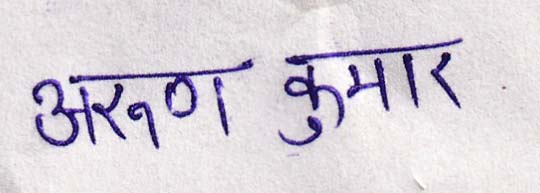 अरुण कुमार